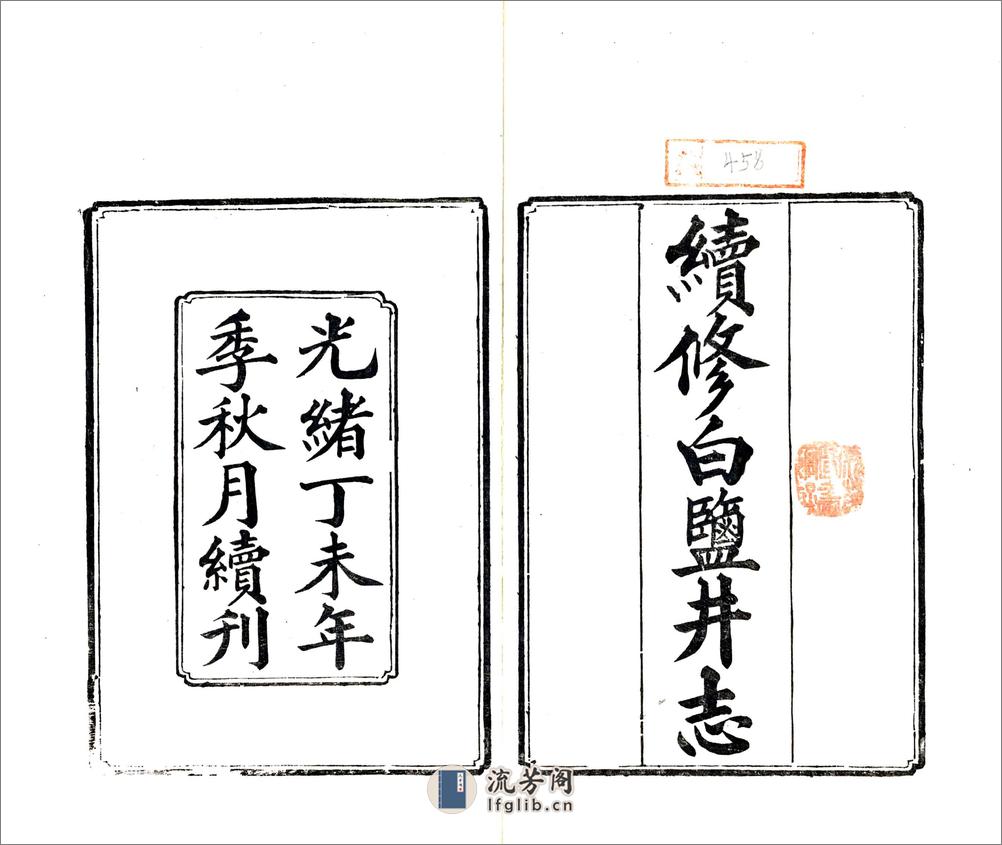 458
續修白鹽井志
光緒丁未年
季秋月續刊
流芳阁
lfglib.cn